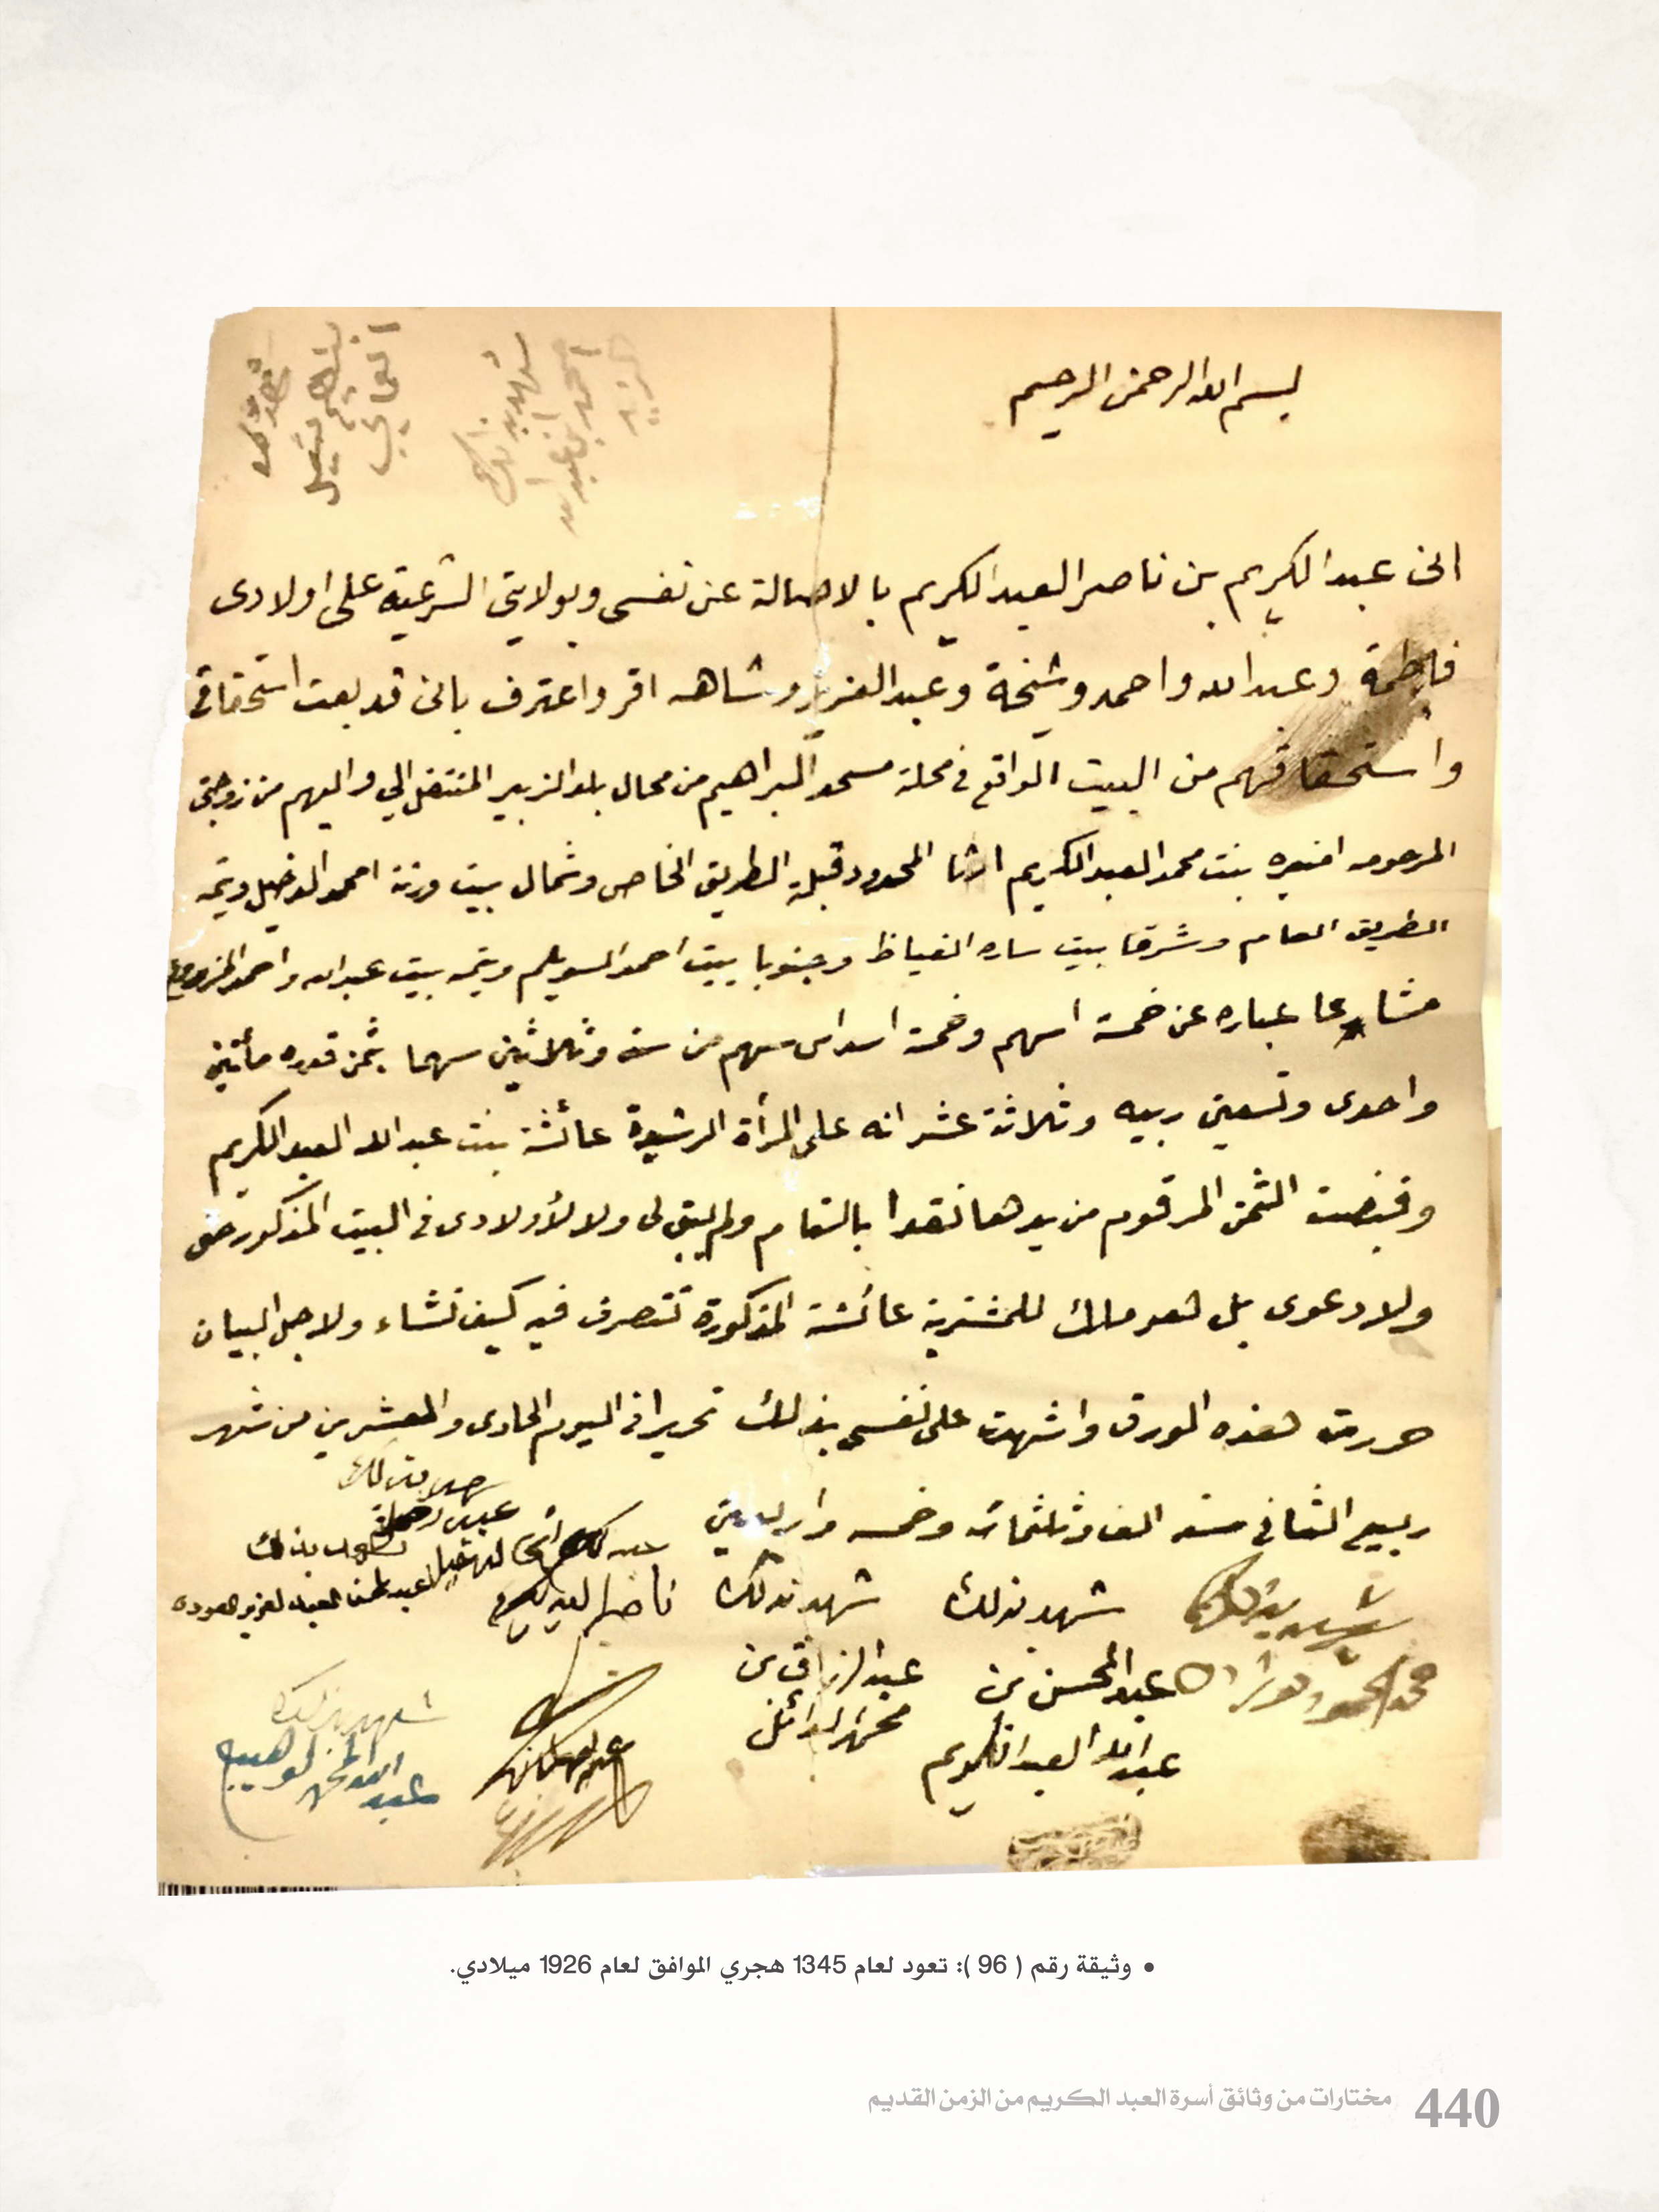 بسم الله الرحمن الرحيم
انى عبد الكريم بن ناصر العبد الكريم بالاصالة عن نفسى وبولايتي الشرعية على اولادى
فاطمة وعبد الله واحمد وشيخة وعبد العزيز وشاهه اقر واعترف بانى قد بعت استحقاقي
واستحقاقهم من البيت الواقع في محلة مسجد البراهيم من محال بلد الزبير المنتقل الي واليهم من زوجتي
المرحومه امنيره بنت محمد العبد الكريم ارثا المحدود قبلة الطريق الخاص وشمال بيت ورثة امحمد الدخيل ويتمه
الطريق العام وشرقا بيت ساره الفياظ وجنوبا بيت احمد السويلم ويتمه بيت عبد الله واحمد
مشاعا عباره عن خمسة اسهم وخمسة اسداس سهم من ستة وثلاثين سهما بثمن قدره مأتين
واحدى وتسعين ربيه وثلاثة عشر انه على المرأة الرشيدة عائشة بنت عبد الله العبد الكريم
وقبضت الثمن المرقوم من يدها نقدا بالتمام ولم يبق لى ولا لأولادى في البيت المذكور حق
ولا دعوى بل هو ملك للمشترية عائشة المذكورة تتصرف فيه كيف تشاء ولاجل البيان
حررت هذه الورق واشهدت على نفسي بذلك تحريرا في اليوم الحادى والعشرين من شهر
ربيع الثاني سنه الف وثلثمائه وخمسه واربعين
شهد بذلك
شهد بذلك
عبد المحسن بن
عبد الله العبد الكريم
شهد بذلك
عبد الرزاق بن
محمد الدائل
ناصر العبد الكريم
شهد بذلك
شهد بذلك
عبد الله
• وثيقة رقم ( 96 ): تعود لعام 1345 هجري الموافق لعام 1926 ميلادي.
440 مختارات من وثائق أسرة العبد الكريم من الزمن القديم